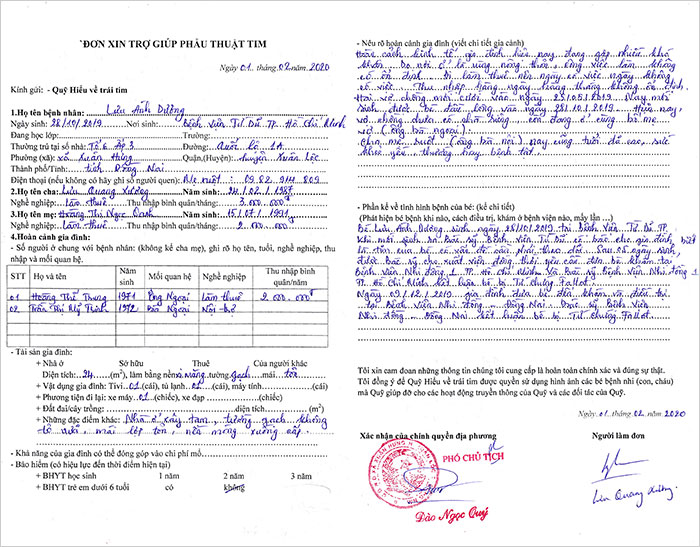 ĐƠN XIN TRỢ GIÚP PHẪU THUẬT TIM
Ngày 01 .tháng.02.năm.2020
Kính gửi: - Quỹ Hiểu về trái tim
1.Họ tên bệnh nhân: Lưu Ánh Dương
Ngày sinh: 28/10/2019 Nơi sinh: Bệnh viện Từ Dũ TP. Hồ Chí Minh
Đang học lớp: Trường:
Thường trú tại số nhà: Tổ 6 Ấp 3 Đường: Quốc lộ 1A
Phường (xã): xã Xuân Hưng Quận,(Huyện): huyện Xuân Lộc
Thành phố/Tỉnh: tỉnh Đồng Nai
Điện thoại (nếu không có hãy ghi số người quen):
2.Họ tên cha: Lưu Quang Năm sinh:
Nghề nghiệp: làm thuê Thu nhập bình quân/tháng: 3.000.000đ
3.Họ tên mẹ: Hoàng Thị Ngọc Oanh Năm sinh: 15/07/1991
Nghề nghiệp: làm thuê Thu nhập bình quân/tháng: 2.000.000đ
4.Hoàn cảnh gia đình:
- Số người ở chung với bệnh nhân: (không kể cha mẹ), ghi rõ họ tên, tuổi, nghề nghiệp, thu
nhập và mối quan hệ.
STT Họ và tên Năm sinh Mối quan hệ Nghề nghiệp Thu nhập bình quân/tháng
01 Hoàng Thế Trung 1971 Ông Ngoại làm thuê 2.000.000đ
02 Trần Thị Mỹ 1972 Bà Ngoại Nội trợ
- Tài sản gia đình:
+ Nhà ở Sở hữu Thuê Của người khác
Diện tích: 24 (m²), làm bằng nền xi măng tường gạch mái tôn
+ Vật dụng gia đình: Tivi 01 (cái), tủ lạnh 01 (cái), máy tính (cái)
+ Phương tiện đi lại: xe máy 01 (chiếc), xe đạp (chiếc)
+ Đất đai/cây trồng: diện tích (m²)
+ Những đặc điểm khác: Nhà ở xây tạm, tường gạch không
tô, mái lợp tôn, nền móng xuống cấp.
- Khả năng của gia đình có thể đóng góp vào chi phí mổ
- Bảo hiểm (có hiệu lực đến thời điểm hiện tại)
+ BHYT học sinh 1 năm 2 năm 3 năm
+ BHYT trẻ em dưới 6 tuổi có không
- Nêu rõ hoàn cảnh gia đình (viết chi tiết gia cảnh)
Hoàn cảnh kinh tế gia đình hiện nay đang gặp nhiều khó
khăn. Do nơi ở là vùng nông thôn công việc làm không
có ổn định. Đi làm thuê nên ngày có việc ngày không
có việc. Thu nhập hàng tháng không ổn định.
Hai vợ chồng mới cưới vào ngày 25/05/2019. Nay mới
sinh được bé đầu lòng vào ngày 28/10/2019. Hiện nay
vợ chồng chưa có nhà riêng còn đang ở cùng bố mẹ
vợ (ông bà ngoại).
Cha mẹ ruột (ông bà nội) nay cũng tuổi đã cao, sức
khỏe yếu, thường hay bệnh tật.
- Phần kể về tình hình bệnh của bé: (kể chi tiết)
(Phát hiện bé bệnh khi nào, cách điều trị, khám ở bệnh viện nào, mấy lần ...)
Bé Lưu Ánh Dương sinh ngày 28/10/2019 tại Bệnh Viện Từ Dũ TP.
Khi mới sinh ra Bác sỹ Bệnh Viện Từ Dũ có báo cho gia đình biết
là tim của bé có vấn đề cần phải theo dõi. Sau 05 ngày sinh
được Bác sỹ cho xuất viện đồng thời yêu cầu đưa bé khám tại
Bệnh viện Nhi đồng 1 TP. Hồ Chí Minh và Bác sỹ Bệnh viện Nhi đồng 1
TP. Hồ Chí Minh kết luận bé bị Tứ chứng Fallot.
Ngày 09/12/2019 gia đình đưa bé đi khám và điều trị
tại Bệnh Viện Nhi đồng - Đồng Nai. Bác sỹ Bệnh viện
Nhi đồng - Đồng Nai kết luận bé bị Tứ chứng Fallot.
Tôi xin cam đoan những thông tin chúng tôi cung cấp là hoàn toàn chính xác và đúng sự thật.
Tôi đồng ý để Quỹ Hiểu về trái tim được quyền sử dụng hình ảnh các bé bệnh nhi (con, cháu)
mà Quỹ giúp đỡ cho các hoạt động truyền thông của Quỹ và các đối tác của Quỹ.
Ngày.01.tháng.02.năm 2020
Xác nhận của chính quyền địa phương
Người làm đơn
PHÓ CHỦ TỊCH
Đào Ngọc Quý
Lưu Quang